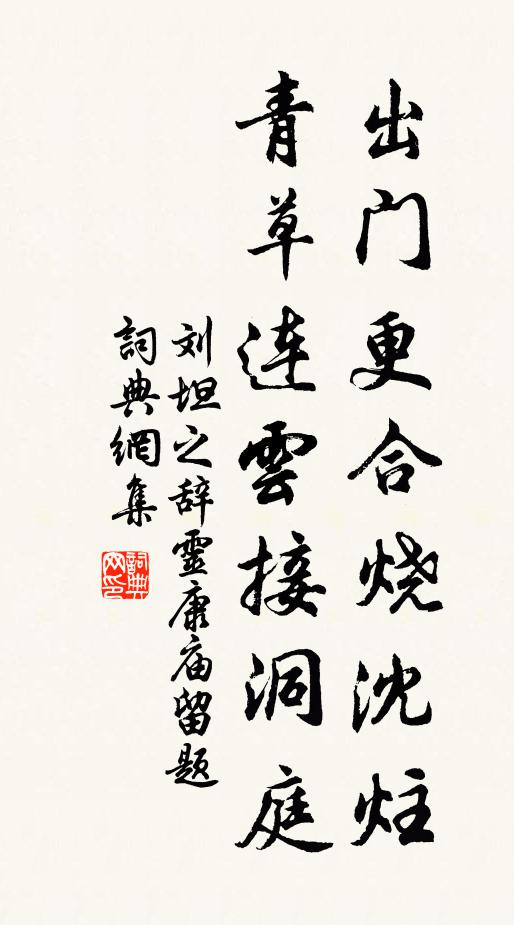 出门更合烧沈炷
青草连雲接洞庭
刘坦之辞靈康庙留题
詞典網集
詞典网印